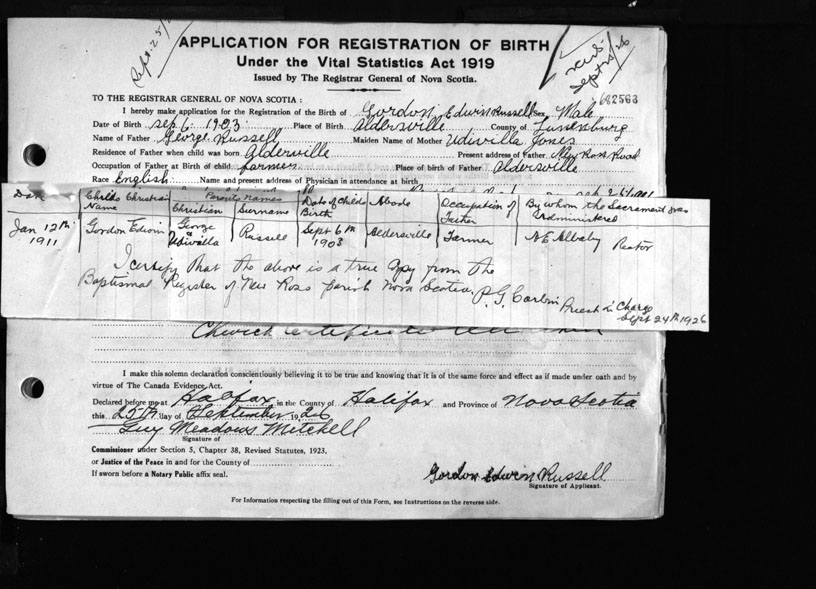 Sept. 25/
APPLICATION FOR REGISTRATION OF BIRTH
Under the Vital Statistics Act 1919
Issued by The Registrar General of Nova Scotia.
Sept 25/26
TO THE REGISTRAR GENERAL OF NOVA SCOTIA:
I hereby make application for the Registration of the Birth of Gordon Edwin Russell Sex Male
Date of Birth Sep 6. 1903 Place of Birth Aldersville County of Lunenburg
Name of Father George Russell Maiden Name of Mother Udivilla Jones
Residence of Father when child was born Alderville Present address of Father New Ross Road
Occupation of Father at Birth of child farmer Place of birth of Father Aldersville
Race English Name and present address of Physician in attendance at birth
Date Childs Christian Name Parents Names Christian Surname Date of Childs Birth Abode Occupation of Father By whom the Sacrament was Administered
Jan 12th 1911 Gordon Edwin George & Udivilla Russell Sept 6th 1903 Aldersville Farmer Rector
I certify that the above is a true copy from the
Baptismal Register of New Ross Parish Nova Scotia.
P. G. Corbin Priest in Charge
Sept 24th 1926
Church Certificate
I make this solemn declaration conscientiously believing it to be true and knowing that it is of the same force and effect as if made under oath and by
virtue of The Canada Evidence Act.
Declared before me at Halifax in the County of Halifax and Province of Nova Scotia
this 25th day of September 1926
Guy Meadows Mitchell
Signature of
Commissioner under Section 5, Chapter 38, Revised Statutes, 1923,
or Justice of the Peace in and for the County of
If sworn before a Notary Public affix seal.
Gordon Edwin Russell
Signature of Applicant.
For Information respecting the filling out of this Form, see Instructions on the reverse side.